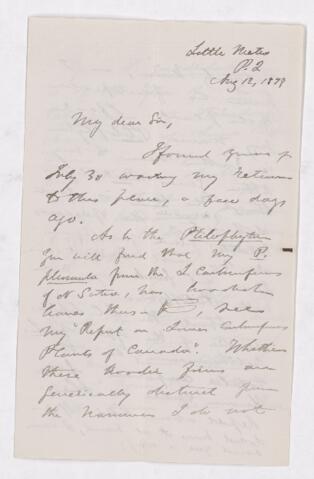 Little Metis
P.Q
Aug 12, 1899
My dear Sir,
I found yours of
July 30 waiting my return
to this place, a few days
ago.
As to the Ptilophyton
you will find that my P.
plumula from the L Carboniferous
of N Scotia, has hooked
leaves thus, see
my "Report on Lower Carboniferous
Plants of Canada". Whether
these hooked forms are
generically distinct from
the narrower I do not